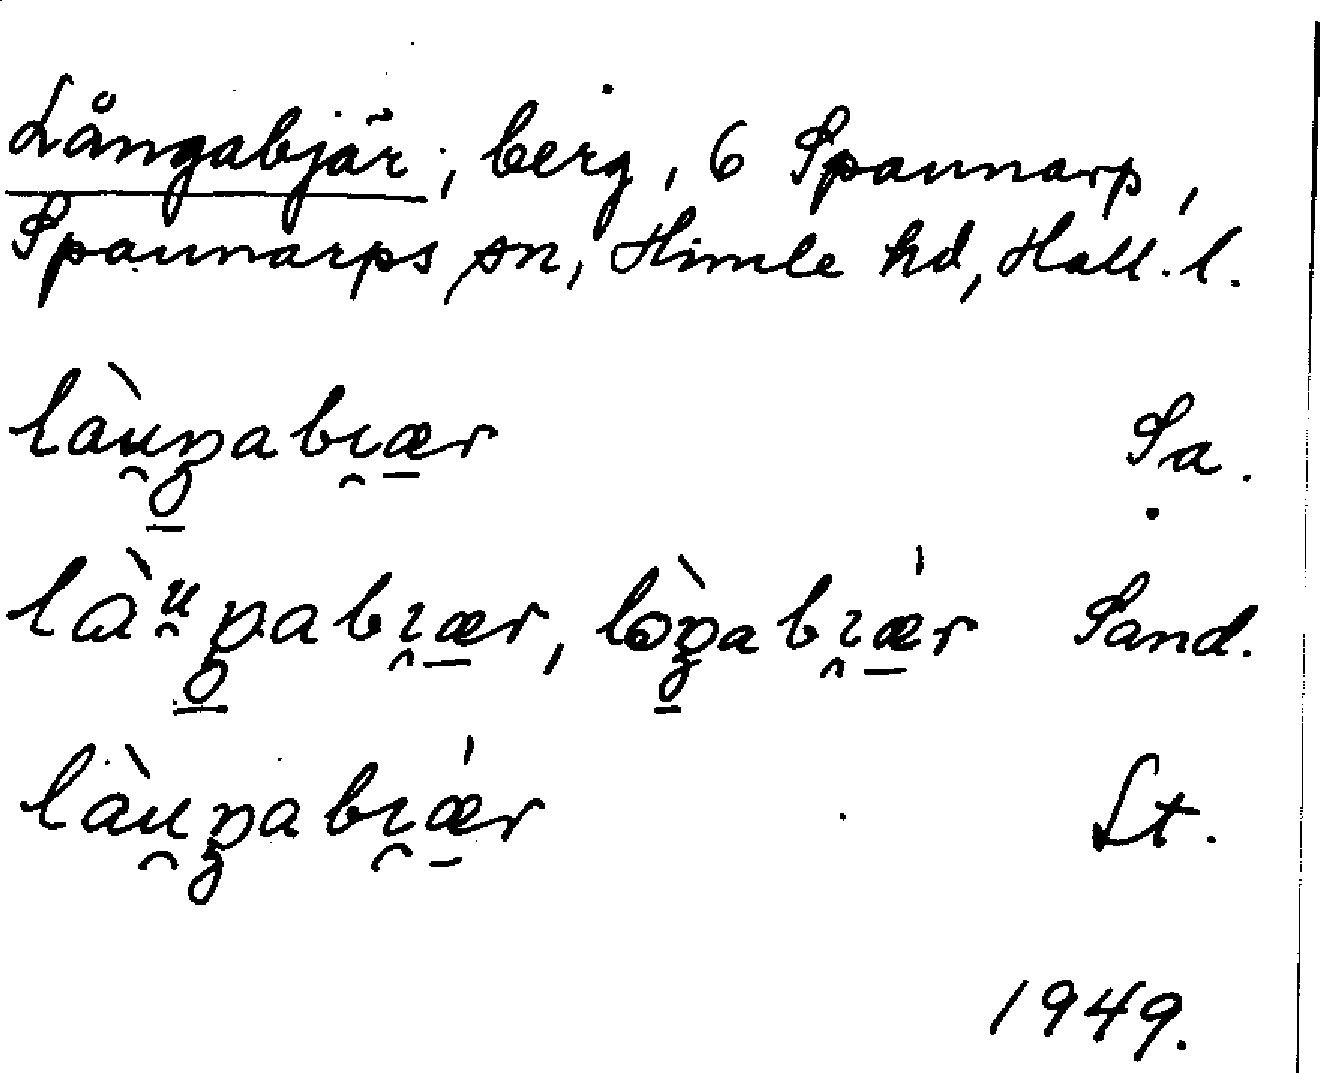 Långabjär, berg, 6 Spannarp,
Spannarps sn, Himle hd, Hall. l.
làu̯ŋabɩ̯ær Sa.
làᵘ̯ŋabɩ̯ær, lòŋabɩ̯æ'r Sand.
làu̯ŋabɩ̯æ'r St.
1949.